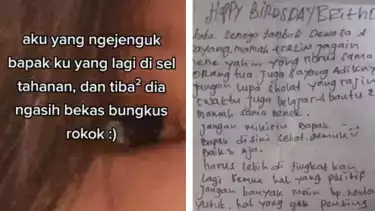 aku yang ngejenguk
bapak ku yang lagi di sel
tahanan, dan tiba² dia
ngasih bekas bungkus
rokok :)
HAPPY
semogo tambah Dewasa
sayang mamak
orang tua. juga sayang Adiknya
jangan lupa sholat yang rajin
waktu juga belajar bantu 2
mamah sama nenek.
jangan mikirin Bapak
Bapak disini sehat. gemuk
Baik2 Aja.
harus lebih di tingkat kan
lagi semua hal yang positif
jangan banyak main hp. nonton
yutub. hal yang gak penting